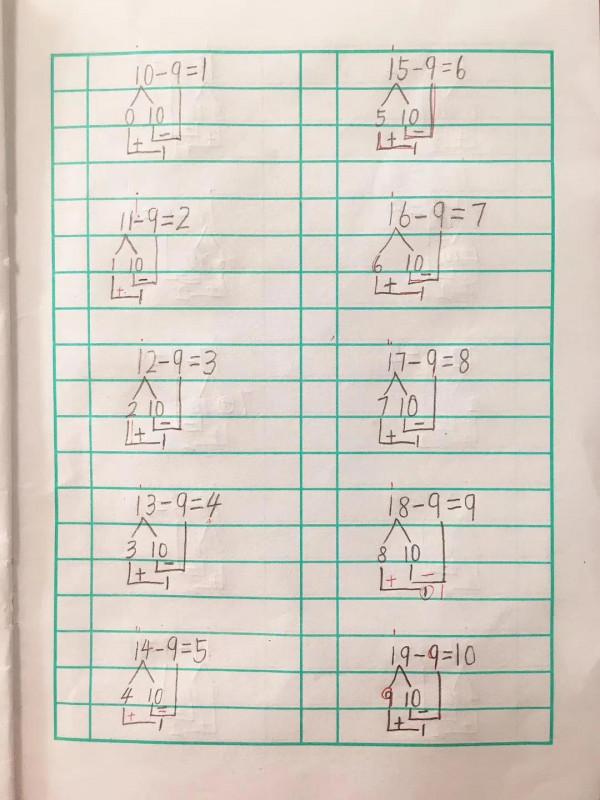 10-9=1
0 10
+ -
1
11-9=2
1 10
+ -
1
12-9=3
2 10
+ -
1
13-9=4
3 10
+ -
1
14-9=5
4 10
+ -
1
15-9=6
5 10
+ -
1
16-9=7
6 10
+ -
1
17-9=8
7 10
+ -
1
18-9=9
8 10
+ -
① 1
19-9=10
9 10
+ -
1